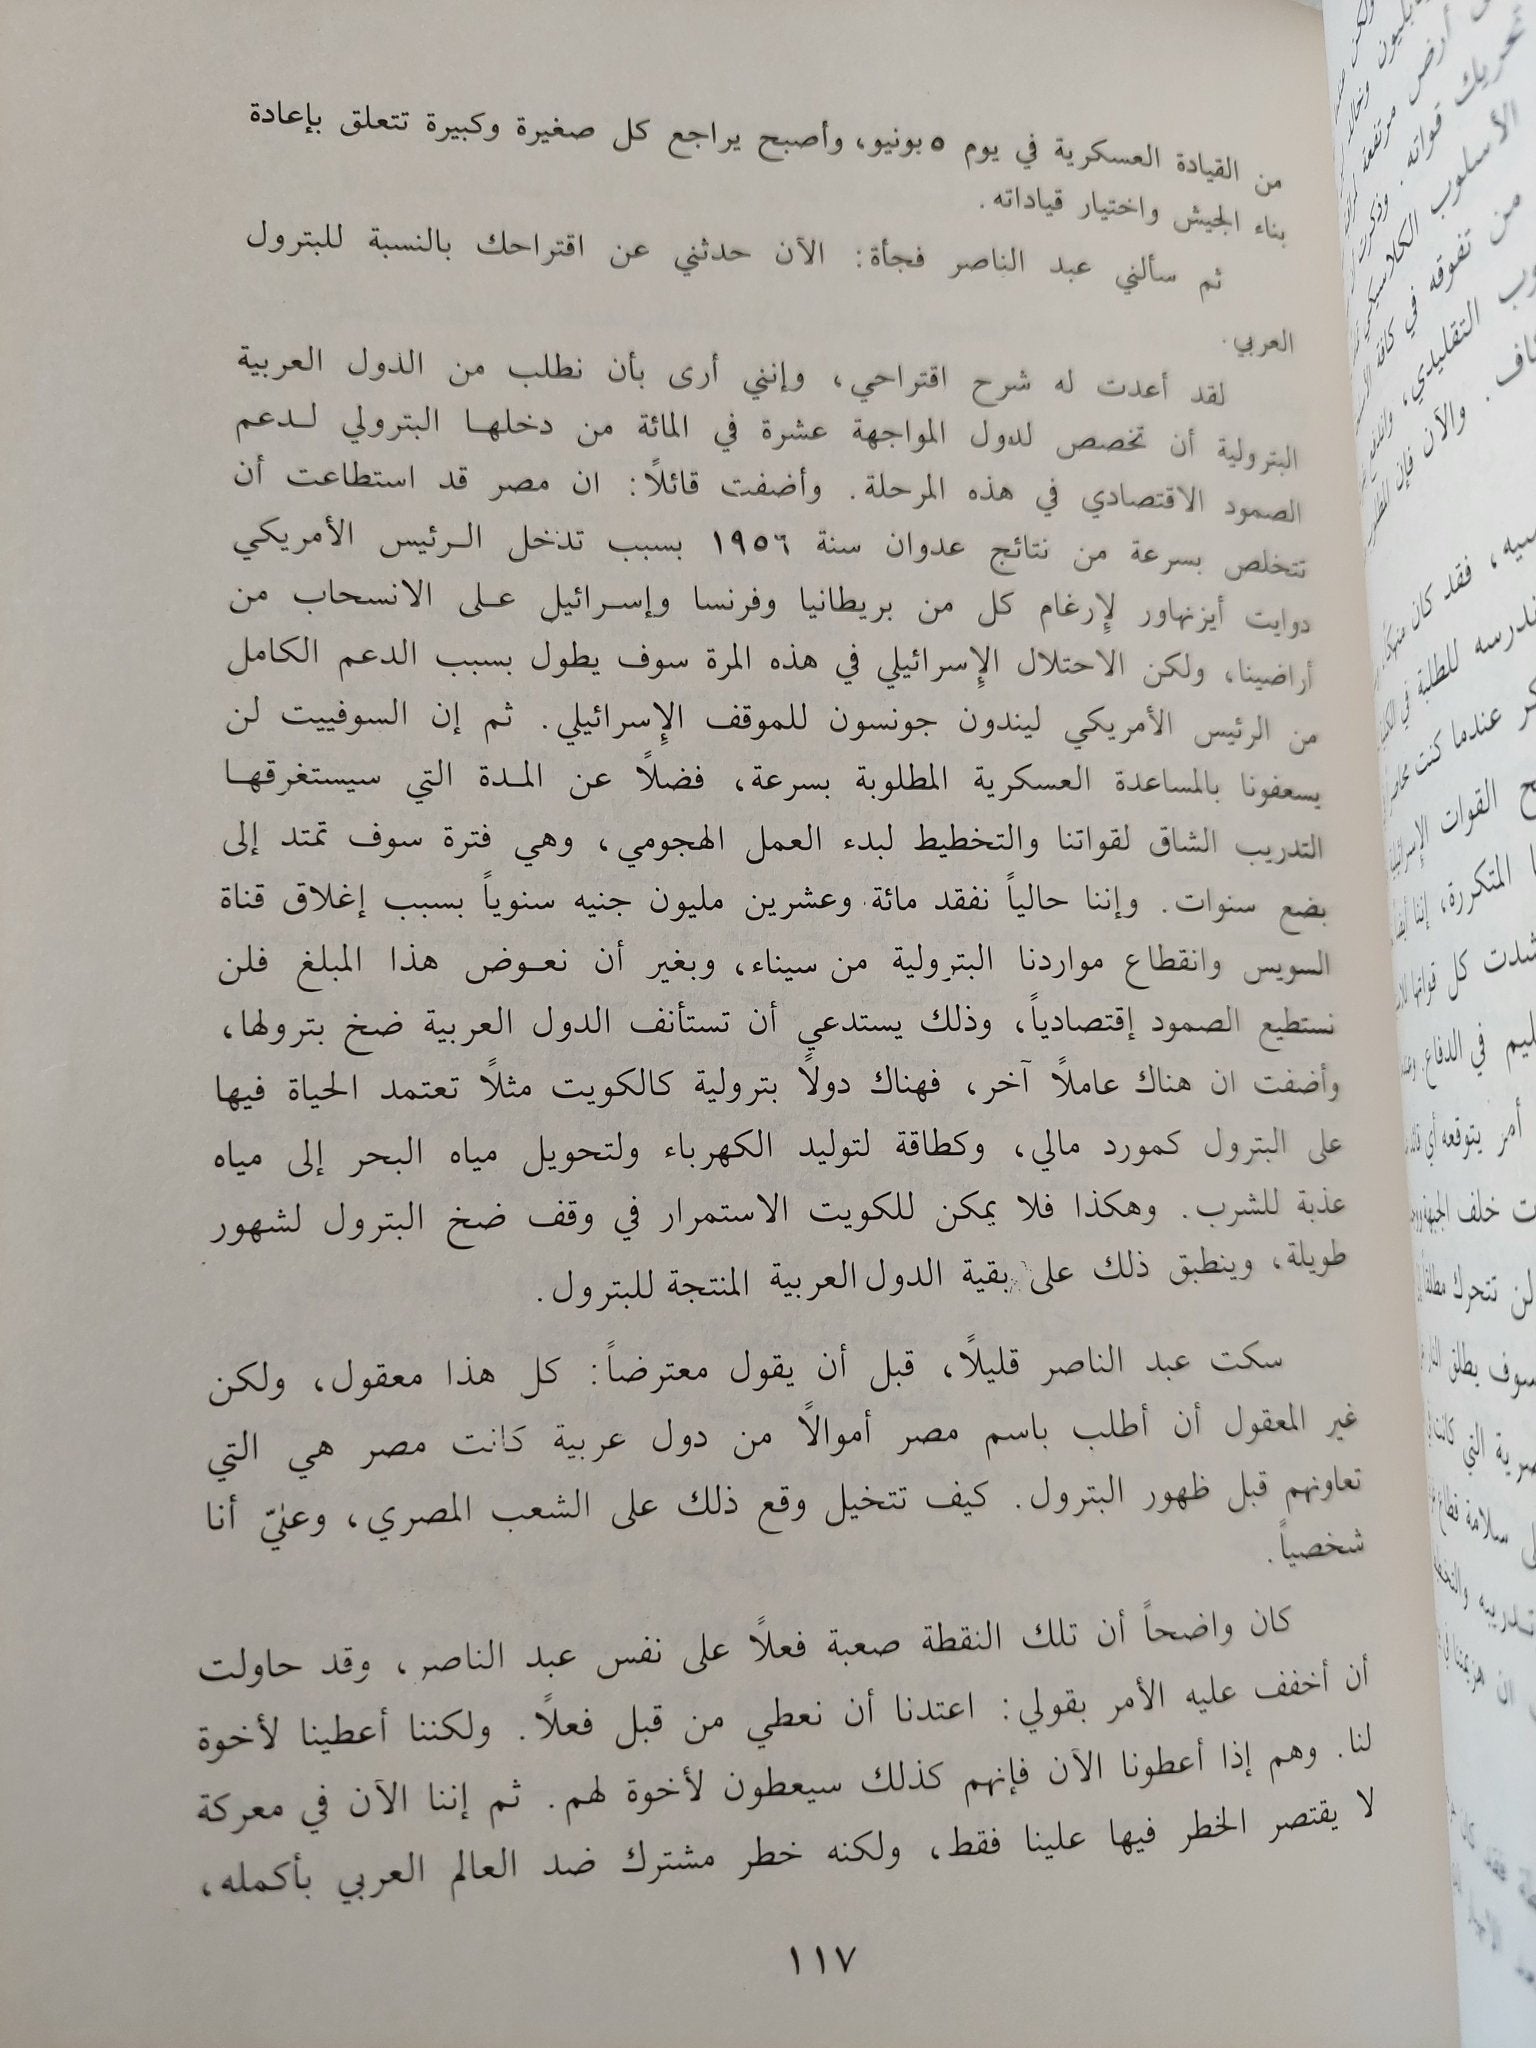 من القيادة العسكرية في يوم ٥ يونيو، وأصبح يراجع كل صغيرة وكبيرة تتعلق بإعادة
بناء الجيش واختيار قياداته.
ثم سألني عبد الناصر فجأة: الآن حدثني عن اقتراحك بالنسبة للبترول
العربي.
لقد أعدت له شرح اقتراحي، وإنني أرى بأن نطلب من الدول العربية
البترولية أن تخصص لدول المواجهة عشرة في المائة من دخلهـا البترولي لـدعم
الصمود الاقتصادي في هذه المرحلة. وأضفت قائلاً: ان مصر قد استطاعت أن
تتخلص بسرعة من نتائج عدوان سنة ١٩٥٦ بسبب تدخل الـرئيس الأمريكي
دوايت أيزنهاور لإرغام كل من بريطانيا وفرنسا وإسـرائيل عـلى الانسحاب من
أراضينا، ولكن الاحتلال الإسرائيلي في هذه المرة سوف يطول بسبب الدعم الكامل
من الرئيس الأمريكي ليندون جونسون للموقف الإسرائيلي. ثم إن السوفييت لن
يسعفونا بالمساعدة العسكرية المطلوبة بسرعة، فضلاً عن المـدة التي سيستغرقهـا
التدريب الشاق لقواتنا والتخطيط لبدء العمل الهجومي، وهي فترة سوف تمتد إلى
بضع سنوات. وإننا حالياً نفقد مائة وعشرين مليون جنيه سنوياً بسبب إغلاق قناة
السويس وانقطاع مواردنا البترولية من سيناء، وبغير أن نعـوض هذا المبلغ فلن
نستطيع الصمود إقتصادياً، وذلك يستدعي أن تستأنف الدول العربية ضخ بترولها،
وأضفت ان هناك عاملاً آخر، فهناك دولاً بترولية كالكويت مثلاً تعتمد الحياة فيها
على البترول كمورد مالي، وكطاقة لتوليد الكهرباء ولتحويل مياه البحر إلى مياه
عذبة للشرب. وهكذا فلا يمكن للكويت الاستمرار في وقف ضخ البترول لشهور
طويلة، وينطبق ذلك على بقية الدول العربية المنتجة للبترول.
سكت عبد الناصر قليلاً، قبل أن يقول معترضاً: كل هذا معقول، ولكن
غير المعقول أن أطلب باسم مصر أموالاً من دول عربية كانت مصر هي التي
تعاونهم قبل ظهور البترول. كيف تتخيل وقع ذلك على الشعب المصري، وعليّ أنا
شخصياً.
كان واضحاً أن تلك النقطة صعبة فعلاً على نفس عبد الناصر، وقد حاولت
أن أخفف عليه الأمر بقولي: اعتدنا أن نعطي من قبل فعلاً. ولكننا أعطينا لأخوة
لنا. وهم إذا أعطونا الآن فإنهم كذلك سيعطون لأخوة لهم. ثم إننا الآن في معركة
لا يقتصر الخطر فيها علينا فقط، ولكنه خطر مشترك ضد العالم العربي بأكمله،
١١٧